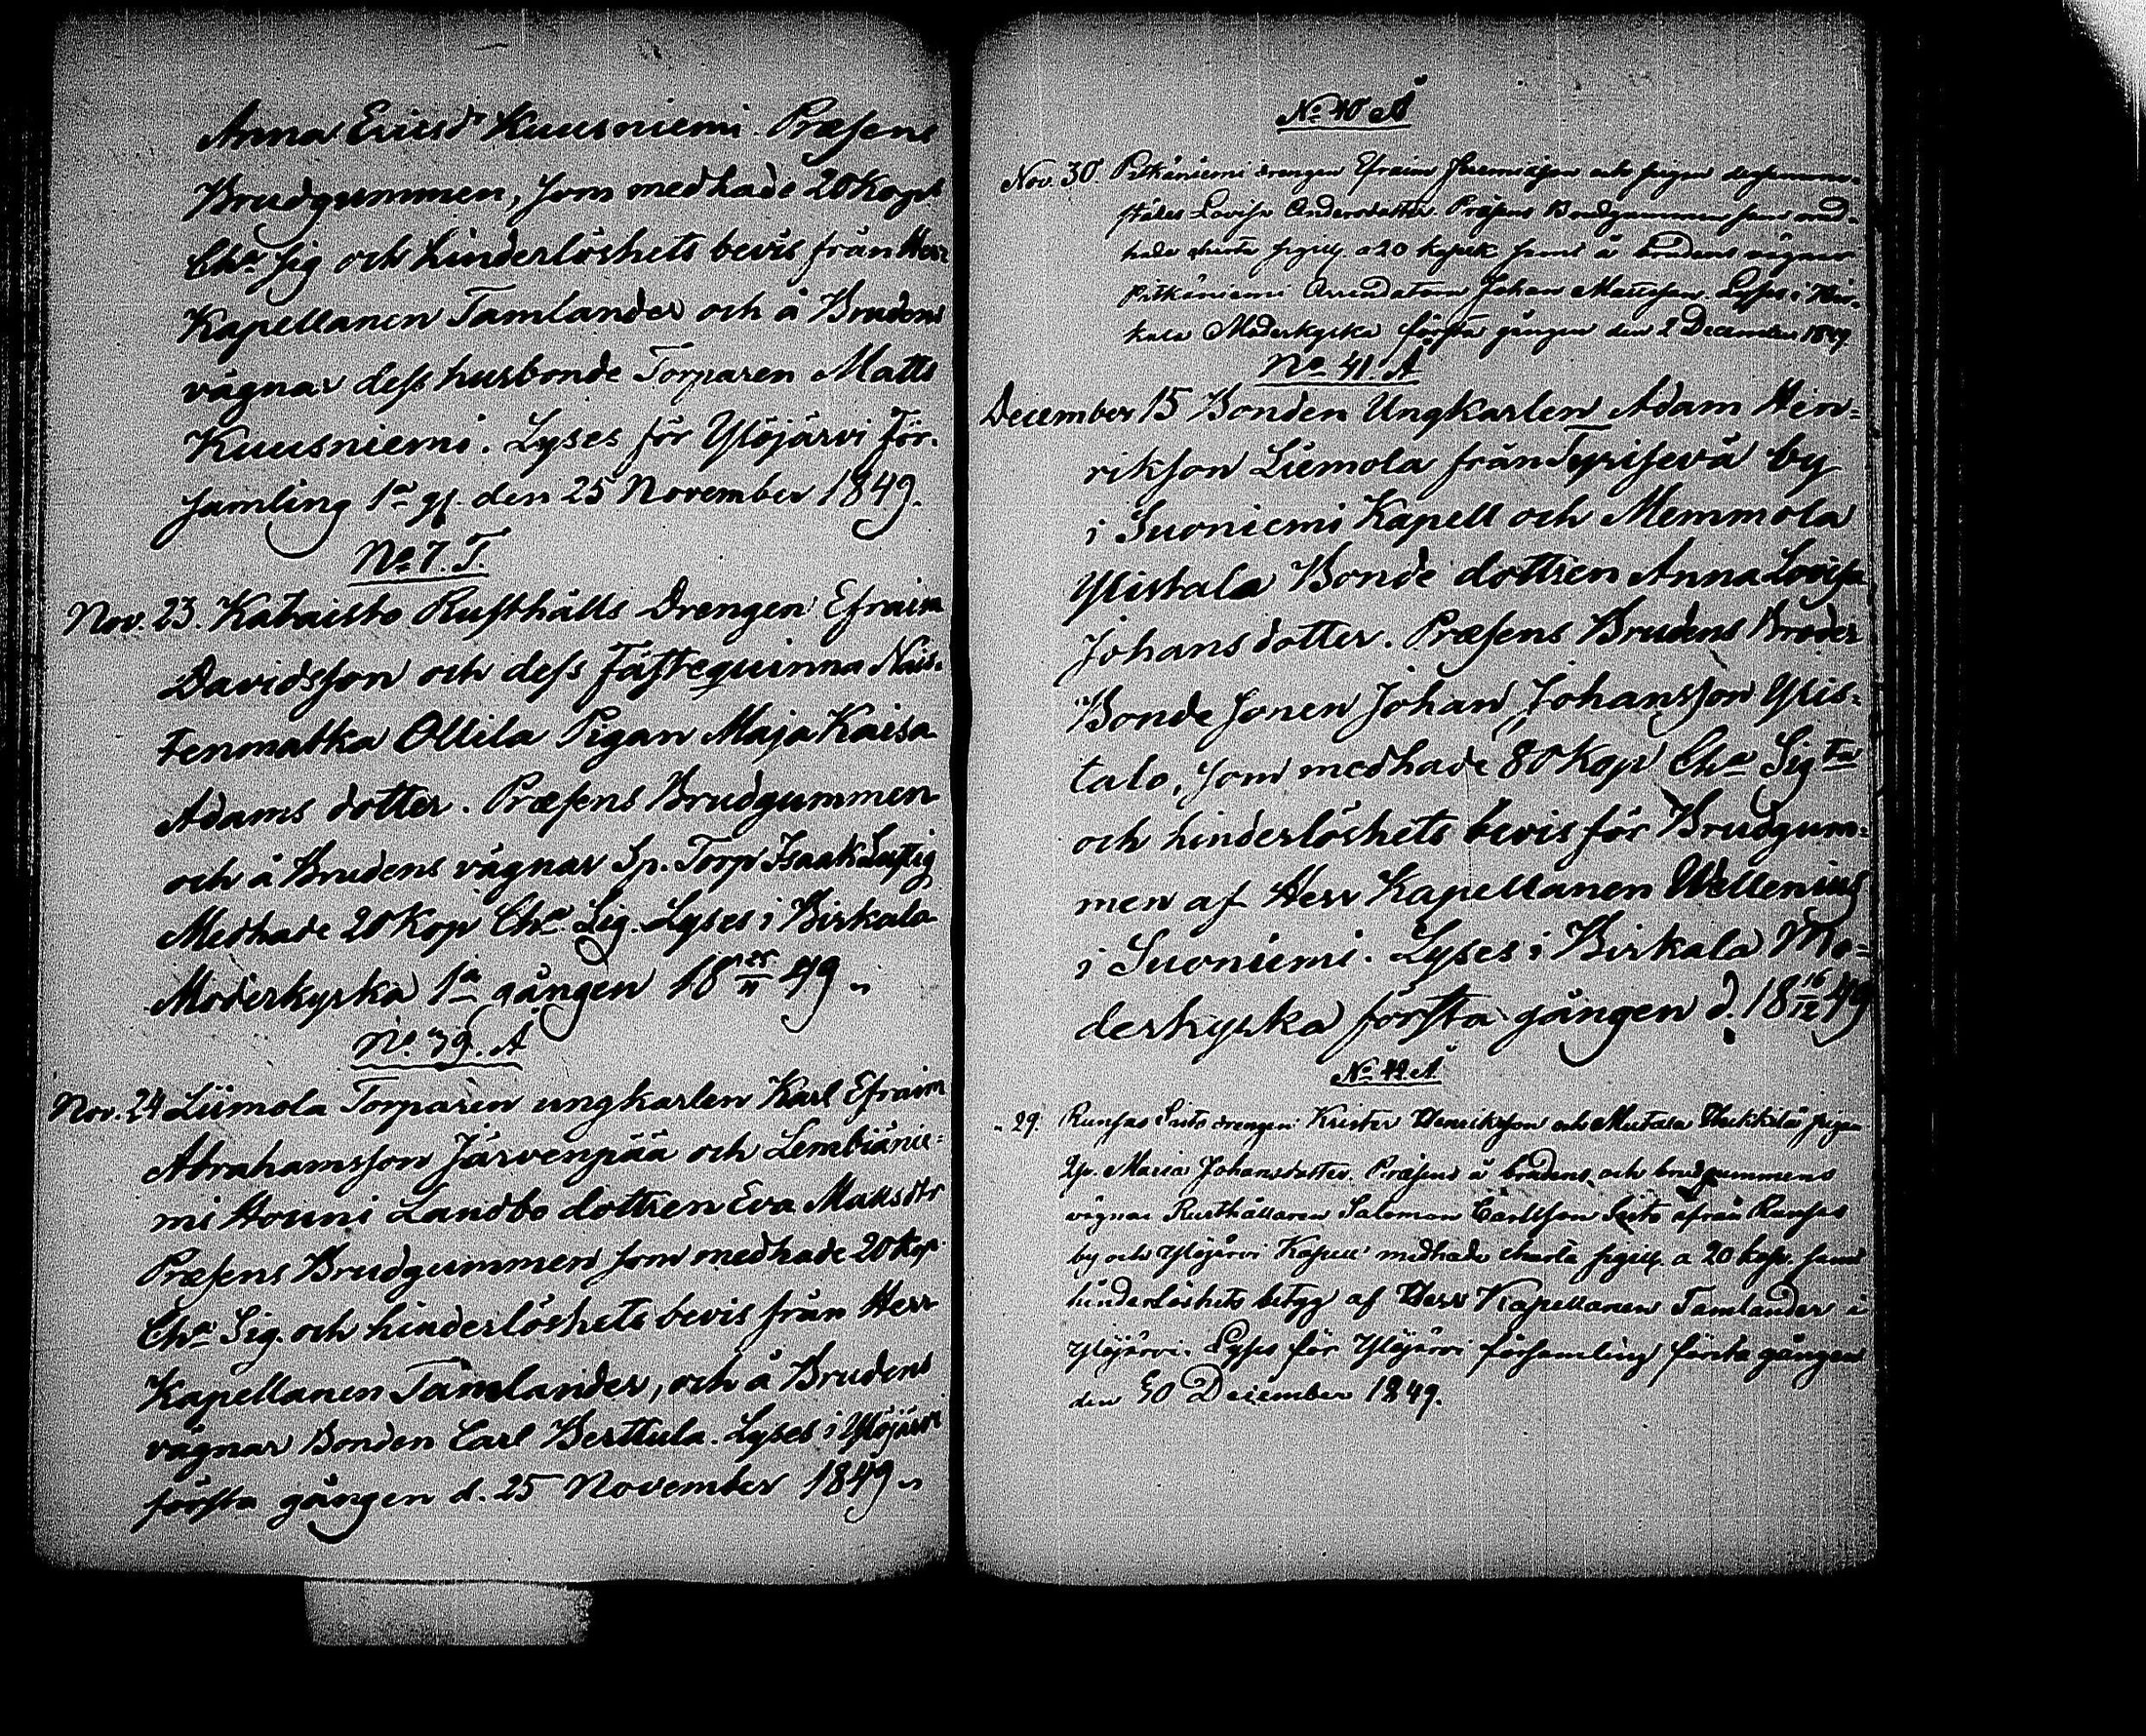 Anna Ericsdr Kuusniemi. Præsens
Brudgummen, som medhade 20 Kops
Cha Sig och hinderlöshets bevis från Herr
Kapellanen Tamlander och å Brudens
vägnar dess husbonde Torparen Matts
Kuusniemi. Lyses för Ylöjärvi För-
samling 1a gg. den 25 November 1849.
No 7. T.
Nov. 23. Kataisto Rusthålls Drengen Efraim
Davidsson och dess Fästequinna Nais-
tenmatka Ollila Pigan Maja Kaisa
Adams dotter. Præsens Brudgummen
och å Brudens vägnar Sp. Torp Isaak
Medhade 20 Kop Cha Sig. Lyses i Birkala
Moderkyrka 1a gången 18 25/11 49 "
No 39. A
Nov. 24 Liimola Torparen ungkarlen Karl Efraim
Abrahamsson Järvenpää och Lembiänie-
mi Houni Landbo dottren Eva Matts dr
Præsens Brudgummen som medhade 20 Kop.
Cha Sig. och hinderlöshets bevis från Herr
Kapellanen Tamlander, och å Brudens
vägnar Bonden Carl Berttula. Lyses i Ylöjärvi
första gången d. 25 November 1849 "
No 40 A
Nov. 30. Pitkäniemi drengen Efraim och pigan dersamma-
städes Lovisa Andersdotter. Præsens Brudgummen som med-
hade charta sigill. a 20 kopek samt å brudens vägnar
Pitkäniemi Arrendatorn Johan Mattsson. Lyses i Bir-
kala Moderkyrka första gången den 2 December 1849
No 41. A
December 15 Bonden Ungkarlen Adam Hen-
riksson Liemola från Tyrisevä by
i Suoniemi Kapell och Memmola
Ylistalo Bonde dottren Anna Lovisa
Johans dotter. Præsens Brudens Broder
Bonde Sonen Johan Johansson Ylis-
talo, som medhade 80 Kop Cha Sigta
och hinderlöshets bevis för Brudgum-
men af Herr Kapellanen Wallenius
i Suoniemi. Lyses i Birkala Mo-
derkyrka första gången d. 18 16/12 49
No 42 A
" 29. Runsas Seits drengen Krister Henriksson och Mutala Heikkilä pigan
Maria Johansdotter. Præsens å brudens och brudgummens
vägnar Rusthållaren Salomon Carlsson Seits ifrån Runsas
by och Ylöjärvi Kapell medhade charta sigill. a 20 kop. samt
hinderlöshets betyg af Herr Kapellanen Tamlander i
Ylöjärvi. Lyses för Ylöjärvi församling första gången
den 30 December 1849.